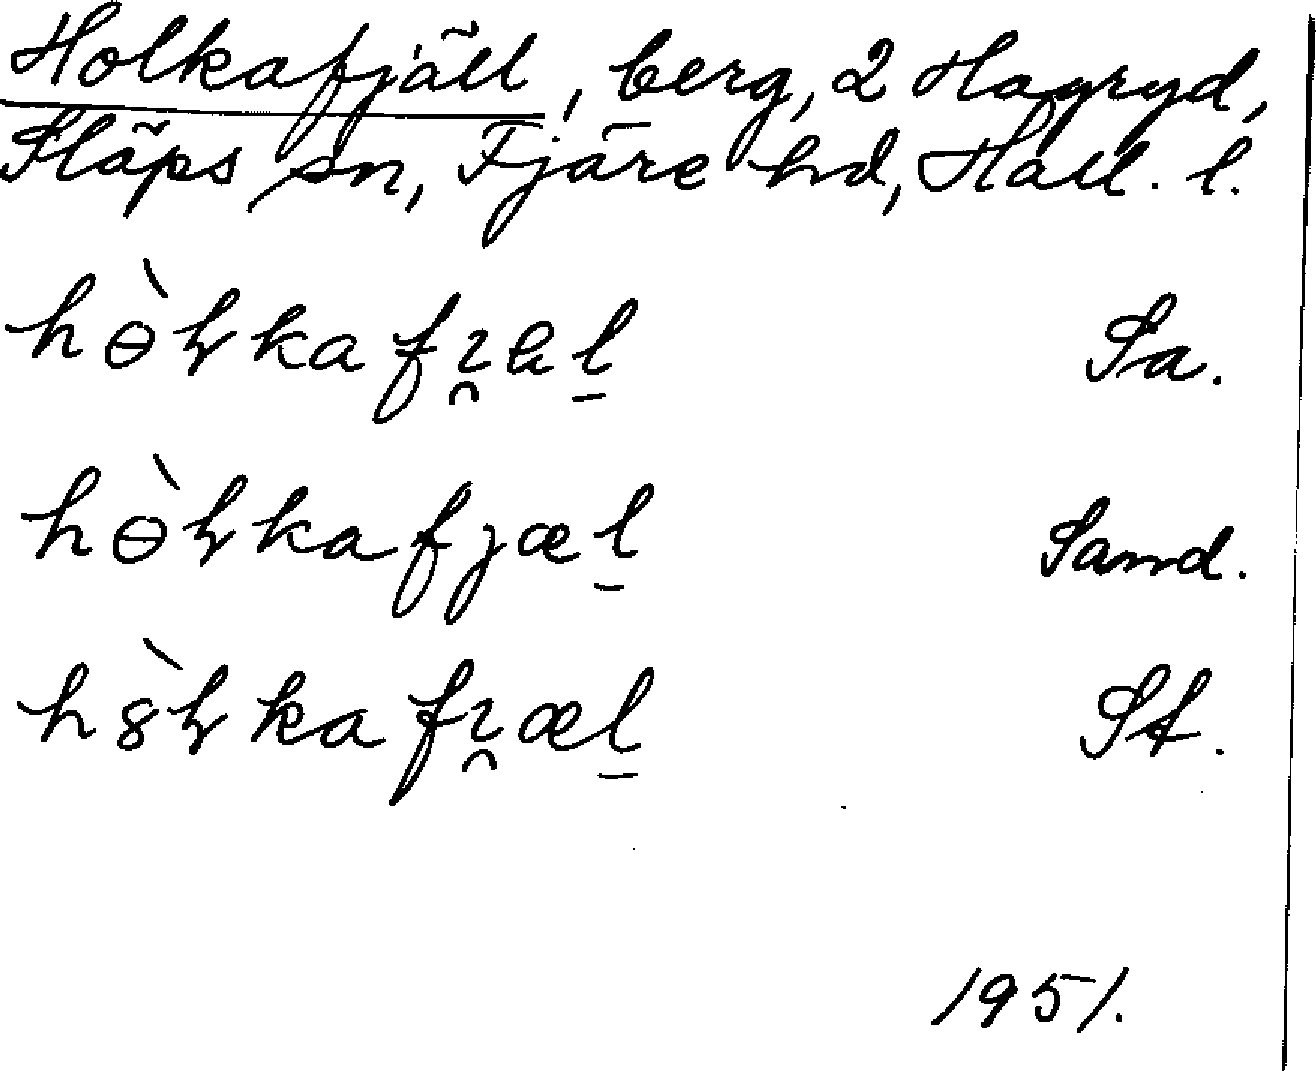 Holkafjäll, berg, 2 Hagryd,
Släps sn, Fjäre hd, Hall. l.
hɵ̀ɫkafı̯ɐl̠ Sa.
hɵ̀ɫkafjæl̠ Sand.
h8̀ɫkafı̯æl̠ St.
1951.